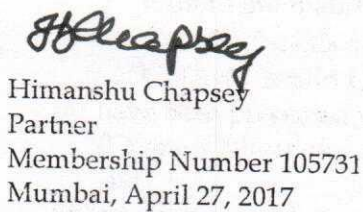 Himanshu Chapsey
Partner
Membership Number 105731
Mumbai, April 27, 2017